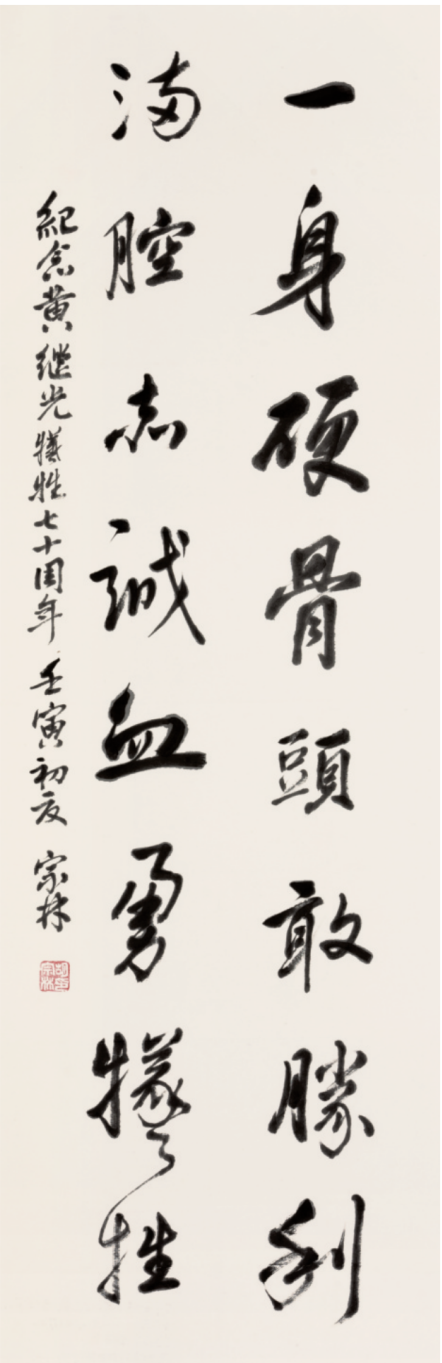 一身硬骨頭敢勝利
滿腔赤誠血勇犧牲
紀念黄继光犧牲七十周年 壬寅初夏 宗林